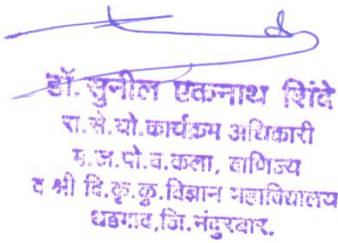 डॉ. सुनील एकनाथ शिंदे
रा.से.यो.कार्यक्रम अधिकारी
म.ज.पो.व.कला, वाणिज्य
व श्री वि.कृ.कु.विज्ञान महाविद्यालय
धडगाव,जि.नंदुरबार.